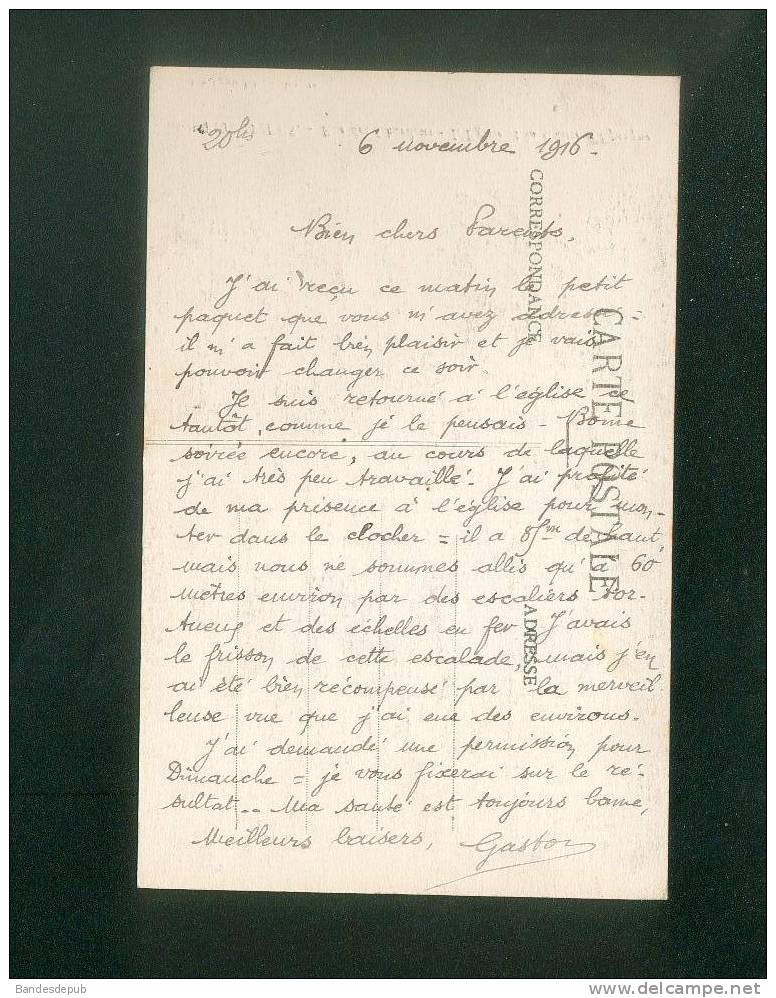 20hs
6 novembre 1916.
Bien chers Parents,
J'ai reçu ce matin le petit
paquet que vous m'avez adressé =
il m'a fait bien plaisir et je vais
pouvoir changer ce soir.
Je suis retourné à l'église ce
tantôt, comme je le pensais - Bonne
soirée encore, au cours de laquelle
j'ai très peu travaillé. J'ai profité
de ma présence à l'église pour mon-
ter dans le clocher = il a 85m de haut,
mais nous ne sommes allés qu'à 60
mètres environ par des escaliers tor-
tueux et des échelles en fer. J'avais
le frisson de cette escalade, mais j'en
ai été bien récompensé par la merveil-
leuse vue que j'ai eue des environs.
J'ai demandé une permission pour
Dimanche = je vous fixerai sur le ré-
sultat.. Ma santé est toujours bonne,
Meilleurs baisers, Gaston
CORRESPONDANCE
CARTE POSTALE
ADRESSE
Bandesdepub
www.delcampe.net